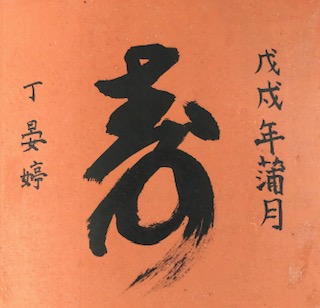 戊戌年蒲月
寿
丁晏婷